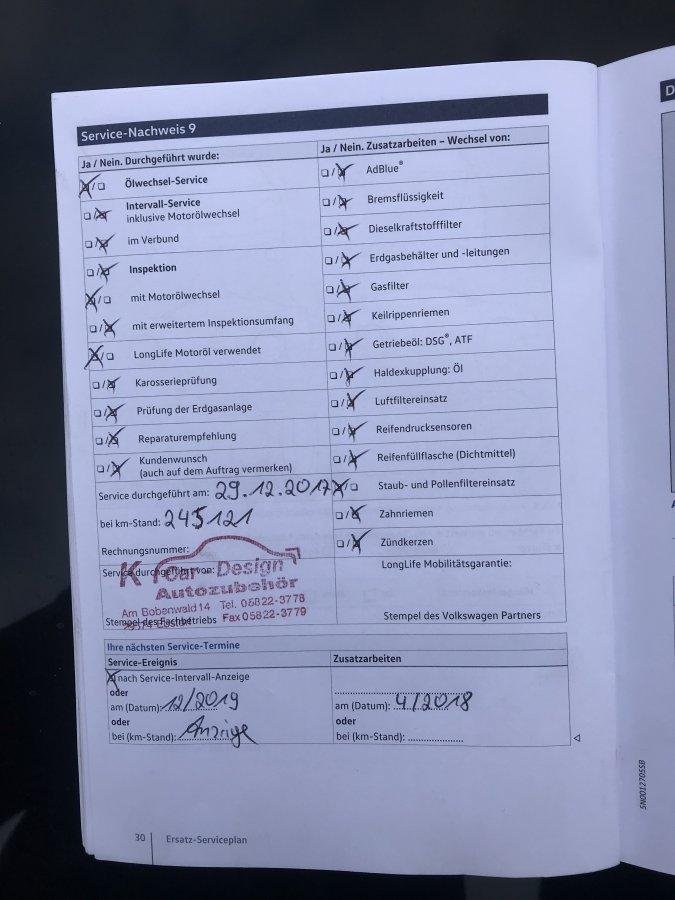 Service-Nachweis 9
Ja / Nein. Durchgeführt wurde:
Ölwechsel-Service
Intervall-Service
inklusive Motorölwechsel
im Verbund
Inspektion
mit Motorölwechsel
mit erweitertem Inspektionsumfang
LongLife Motoröl verwendet
Karosserieprüfung
Prüfung der Erdgasanlage
Reparaturempfehlung
Kundenwunsch
(auch auf dem Auftrag vermerken)
Service durchgeführt am: 29.12.2017
bei km-Stand: 245121
Rechnungsnummer:
Service durchgeführt von:
Design
Autozubehör
Am Bobenwald 14 Tel. 05822-3778
Fax 05822-3779
Stempel des Fachbetriebs
Ja / Nein. Zusatzarbeiten – Wechsel von:
AdBlue®
Bremsflüssigkeit
Dieselkraftstofffilter
Erdgasbehälter und -leitungen
Gasfilter
Keilrippenriemen
Getriebeöl: DSG®, ATF
Haldexkupplung: Öl
Luftfiltereinsatz
Reifendrucksensoren
Reifenfüllflasche (Dichtmittel)
Staub- und Pollenfiltereinsatz
Zahnriemen
Zündkerzen
LongLife Mobilitätsgarantie:
Stempel des Volkswagen Partners
Ihre nächsten Service-Termine
Service-Ereignis
nach Service-Intervall-Anzeige
oder
am (Datum): 12/2019
oder
bei (km-Stand): Anzeige
Zusatzarbeiten
am (Datum): 4/2018
oder
bei (km-Stand):
30
Ersatz-Serviceplan
5N0012705SB
D